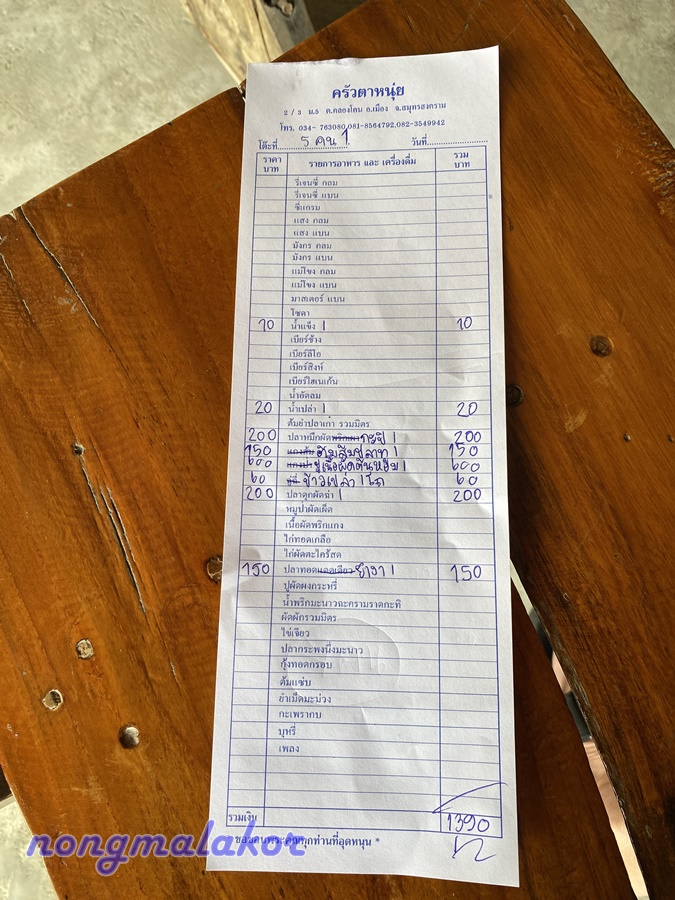 ครัวตาหนุ่ย
2 / 3 ม.5 ต.คลองโคน อ.เมือง จ.สมุทรสงคราม
โทร. 034- 763080,081-8564792,082-3549942
โต๊ะที่ 5 คน 1 วันที่
ราคา บาท รายการอาหาร และ เครื่องดื่ม รวม บาท
รีเจนซี่ กลม
รีเจนซี่ แบน
ซีแกรม
แสง กลม
แสง แบน
มังกร กลม
มังกร แบน
แม่โขง กลม
แม่โขง แบน
มาสเตอร์ แบน
โซดา
10 น้ำแข็ง 1 10
เบียร์ช้าง
เบียร์ลีโอ
เบียร์สิงห์
เบียร์ไฮเนเก้น
น้ำอัดลม
20 น้ำเปล่า 1 20
ต้มยำปลาเก๋า รวมมิตร
200 ปลาหมึกผัดพริกเผา กะปิ 1 200
150 แกงส้ม ต้มส้มปลาทู 1 150
600 แกงป่า ปูเนื้อผัดต้นหอม 1 600
60 ข้าวเปล่า 1 โถ 60
200 ปลาดุกผัดฉ่า 1 200
หมูป่าผัดเผ็ด
เนื้อผัดพริกแกง
ไก่ทอดเกลือ
ไก่ผัดตะไคร้สด
150 ปลาทอดแดดเดียว 1 150
ปูผัดผงกะหรี่
น้ำพริกมะนาวฉะครามราดกะทิ
ผัดผักรวมมิตร
ไข่เจียว
ปลากระพงนึ่งมะนาว
กุ้งทอดกรอบ
ต้มแซ่บ
ยำเม็ดมะม่วง
กะเพรากบ
บุหรี่
เพลง
รวมเงิน 1390
ขอบคุณพระคุณทุกท่านที่อุดหนุน *
nongmalakor